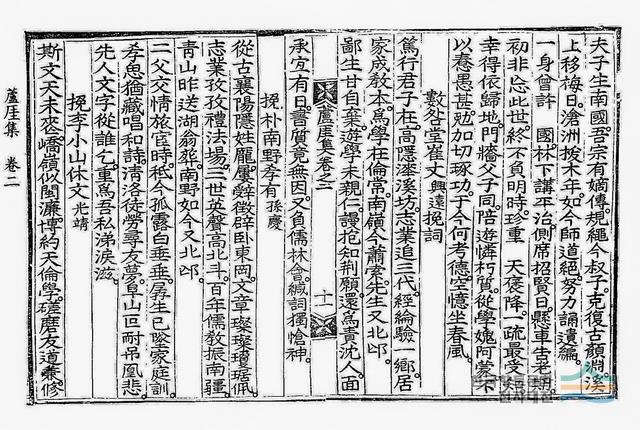 夫子生南國吾宗有嫡傳規繩今叔子克復古顏淵溪
上移梅日滄洲披木年如今師道絕努力誦遺篇
一身曾許　國林下講平治側席招賢日懸車告老
初非忘此世終不負明時珍重　天褒降一疏最受
幸得依歸地門牆父子同陪遊憐朽質從學媿阿蒙不
以蠢愚甚勉加切琢功于今何考德空憶坐春風
輓晦堂崔丈興遠挽詞
篤行君子在高隱漆溪坊志業追三代經綸驗一鄉居
家成敎本爲學在倫常南嶺今蕭索先生又北邙
鄙生甘自棄遊學未親仁謾抱知荆願還爲責沈人面
承定有日瞽質竟無因又負儒林會緘詞獨愴神
挽朴南野孝有孫慶
從古襄陽隱姓龐屢辭徵辟卧東岡文章璨璨璜琚珮
志業孜孜禮法場三世英聲高北斗百年儒敎振南疆
靑山昨送湖翁葬南野如今又北邙
二父交情旅宦時秪今孤露白垂垂孱生已墜家庭訓
孝思猶藏唱和詩淸洛徒勞尋友夢阜山叵耐吊凰悲
先人文字從誰乞重爲吾私涕淚滋
挽李小山休文光靖
斯文天未喪嶠嶺似閩濂博約天倫學磋磨友道兼修
蘆厓集卷之二
十一
蘆厓集　卷二